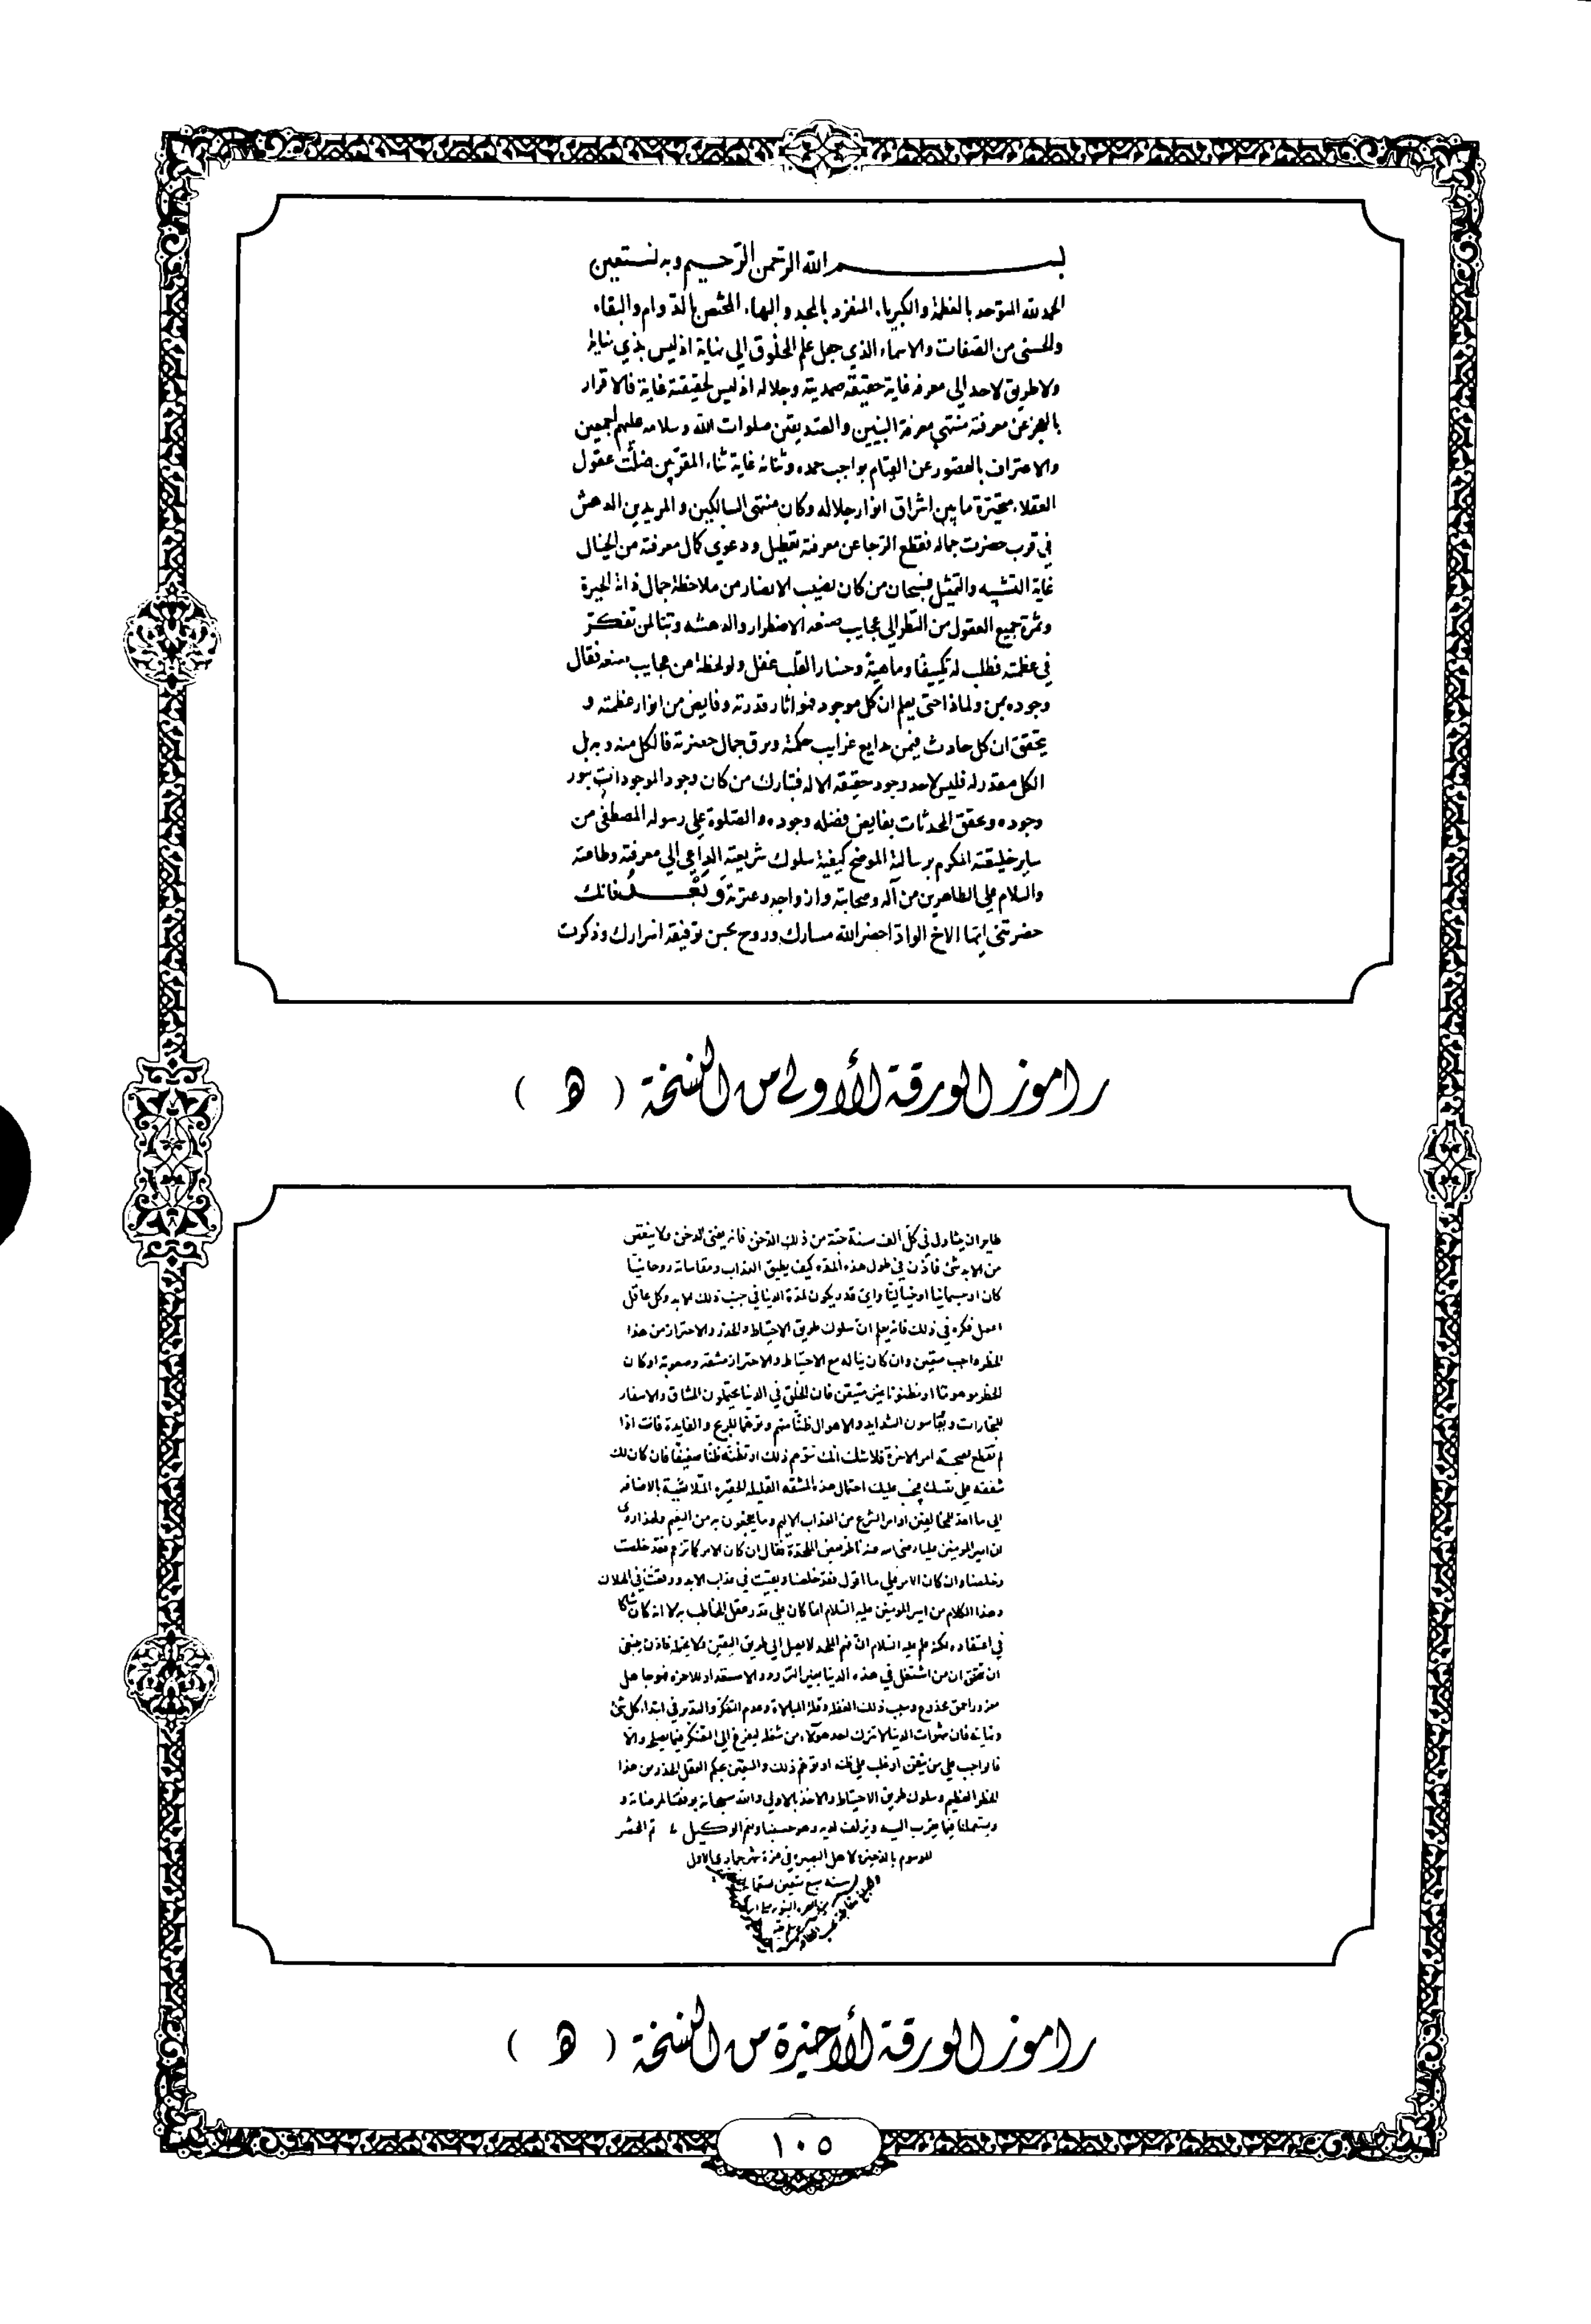 بسم الله الرحمن الرحيم وبه نستعين
الحمد لله المتوحد بالعظمة والكبرياء المنفرد بالمجد والبهاء المختص بالدوام والبقاء
والحسنى من الصفات والاسماء الذي جعل علم الخلوق الى نهاية اذ ليس بذي نهاية
ولا طريق لاحد الي معرفة غاية حقيقة صمديته وجلاله اذ ليس لحقيقته غاية فالاقرار
بالعجز عن معرفته منتهي معرفة النبيين والصديقين صلوات الله وسلامه عليهم اجمعين
والاعتراف بالقصور عن القيام بواجب حمده وثنائه غاية ثناء المقربين ضلت عقول
العقلاء متحيرة ما بين اشراق انوار جلاله وكان منتهى السالكين والمريدين الدهش
في قرب حضرت جماله فقطع الرجا عن معرفته تعطيل ودعوي كمال معرفته من الخيال
غاية التشبيه والتمثيل فسبحان من كان نصيب الابصار من ملاحظة جمال ذاته الحيرة
وثمرة جميع العقول من النظر الي عجايب صنعه الاضطرار والدهشه وتبا لمن تفكر
في عظمته فطلب له تكييفا وماهية وخسار القلب غفل ولو لحظة من عجايب صنعه فقال
وجوده بمن ولماذا حتى يعلم ان كل موجود فهو اثار قدرته وفايض من انوار عظمته و
يتحقق ان كل حادث فمن بدايع غرايب حكمته وبرق جمال حضرته فالكل منه وبه بل
الكل مقدر له فليس لاحد وجود حقيقة الا له فتبارك من كان وجود الموجودات بنور
وجوده وتحقق المحدثات بفايض فضله وجوده والصلوة علي رسوله المصطفى من
ساير خليقته المكرم برسالته الموضح كيفية سلوك شريعته الداعي الي معرفته وطاعته
والسلام علي الطاهرين من آله وصحابته وازواجه وعترته وبعد فانك
حضرتني ايها الاخ الواد احضر الله مسارك وروح بحسن توفيقه اسرارك وذكرت
راموز الورقة الأولى من النسخة ( ه )
طاير ان يتناول في كل الف سنة حبة من ذلك الدخن فانه يفنى الدخن ولا ينقص
من الابد شئ فاذن في طول هذه المدة كيف يطيق العذاب ومقاساته روحانيا
كان او جسمانيا او خياليا واي قدر يكون لمدة الدنيا في جنب ذلك الابد وكل عاقل
اعمل فكره في ذلك فانه يعلم ان سلوك طريق الاحتياط والحذر والاحتراز من هذا
الخطر واجب متعين وان كان يناله مع الاحتياط والاحتراز مشقة وصعوبة او كان
الخطر موهوما او مظنونا غير متيقن فان الخلق في الدنيا يحتملون المشاق والاسفار
للتجارات ويقاسون الشدايد والاهوال ظنا منهم وتوهما للربح والفايدة فانت اذا
لم تقطع بصحة امر الاخرة فلا شك انك تتوهم ذلك او تظنه ظنا ضعيفا فان كان لك
شفقة علي نفسك يجب عليك احتمال هذه المشقة القليلة الحقيرة المتلاشية بالاضافه
الى ما اعد من العذاب الاليم
ان امير المومنين عليا رضي الله عنه ناظر بعض الملحدة فقال ان كان الامر كما تزعم فقد خلصت
وخلصنا وان كان الامر علي ما اقول فقد خلصنا وبقيت في عذاب الابد ووقعت في الهلاك
وهذا الكلام من امير المومنين عليه السلام انما كان علي قدر عقل المخاطب به لا انه كان شاكا
في اعتقاده لكنه علم عليه السلام ان فهم الملحد لا يصل الي طريق اليقين فاذن ينبغي
ان تتحقق ان من اشتغل في هذه الدنيا بغير التزود والاستعداد للاخرة فهو جاهل
مغرور احمق مخدوع وسبب ذلك الغفلة وقلة المبالاة وعدم التفكر والتدبر في ابتداء كل شئ
ونهايته فان شهوات الدنيا لا تترك احد هؤلاء من شغله ليفرغ الي التفكر فيما يصلح والا
فالواجب علي من تيقن او غلب علي ظنه او توهم ذلك واليقين بحكم العقل الحذر من هذا
الخطر العظيم وسلوك طريق الاحتياط والاخذ بالاولى والله سبحانه يوفقنا لمرضاته و
ويستعملنا فيما يقرب اليه ويزلف لديه وهو حسبنا ونعم الوكيل تم المختصر
الموسوم بالذخيرة لاهل البصيرة في غرة شهر جمادي الاول
سنة سبع
راموز الورقة الأخيرة من النسخة ( ه )
١٠٥